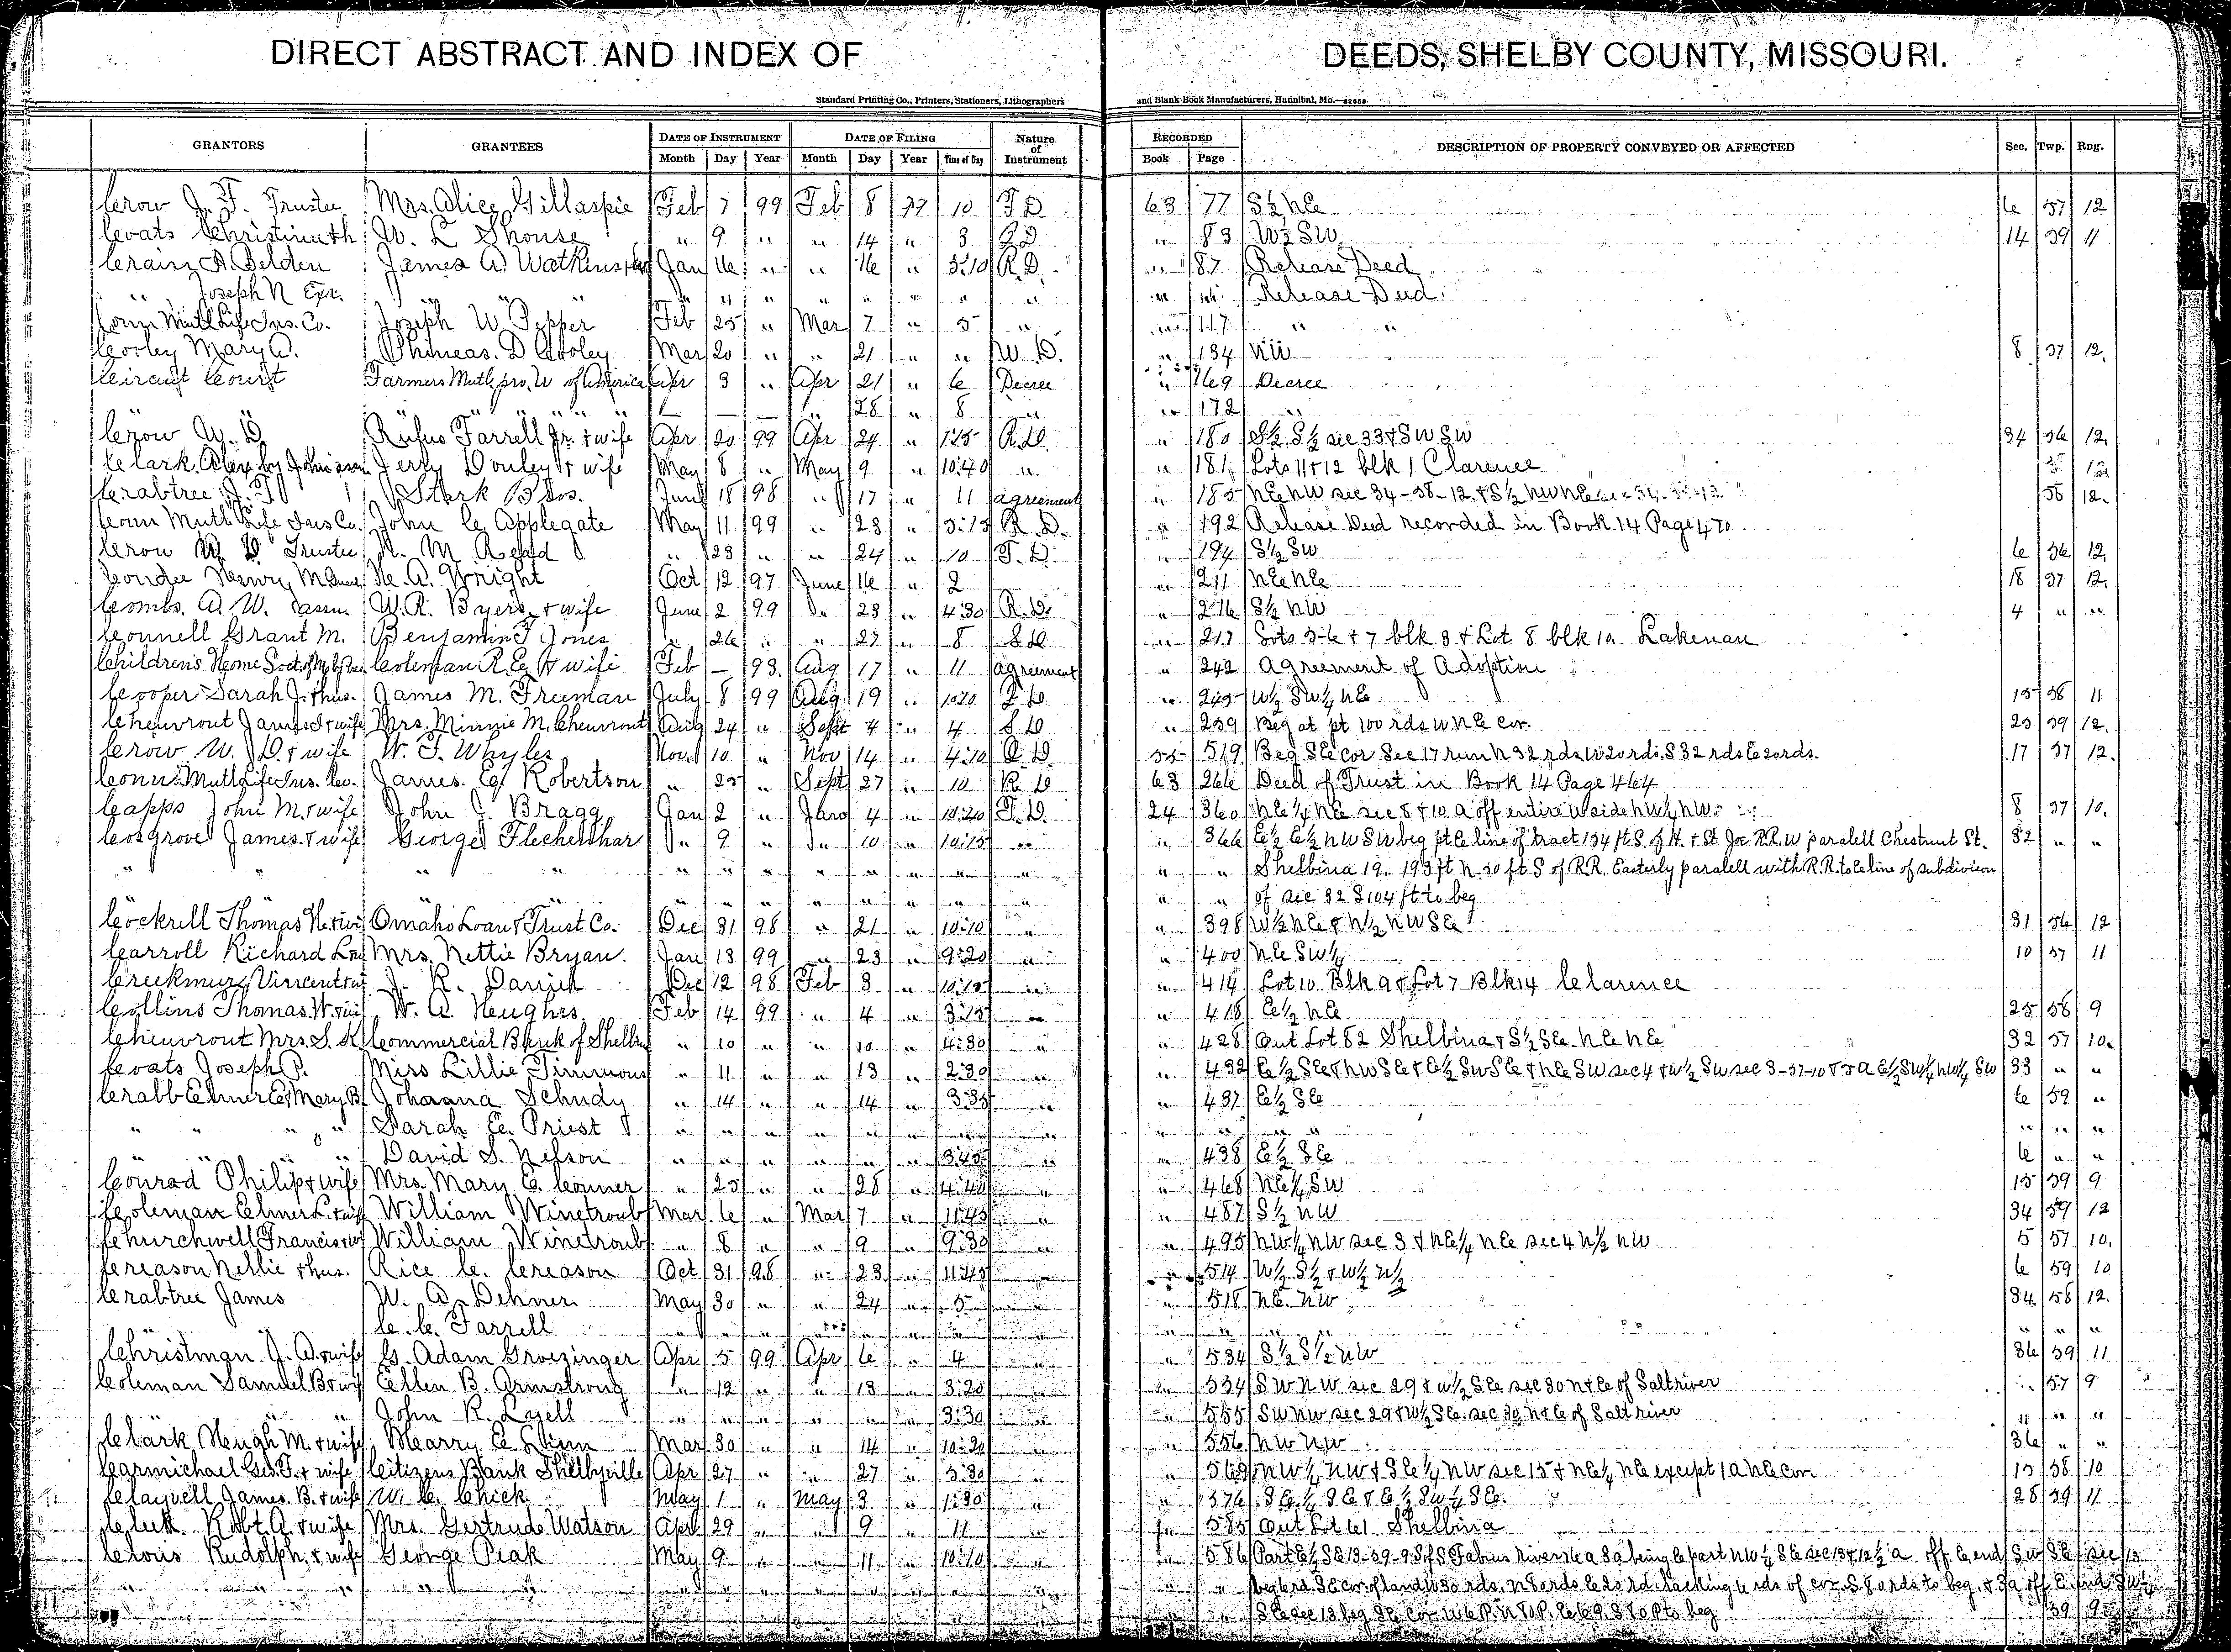 DIRECT ABSTRACT AND INDEX OF DEEDS, SHELBY COUNTY, MISSOURI.
Standard Printing Co., Printers, Stationers, Lithographers and Blank Book Manufacturers, Hannibal, Mo.
GRANTORS GRANTEES DATE OF INSTRUMENT DATE OF FILING Nature of Instrument RECORDED DESCRIPTION OF PROPERTY CONVEYED OR AFFECTED Sec. Twp. Rng.
Month Day Year Month Day Year Time of Day Book Page
Crow J. F. Trustee Mrs. Alice Gillaspie Feb 7 99 Feb 8 99 10 T D 63 77 S½ NE 6 57 12
Coats W. L. Shouse " 9 " " 14 " 3 " 83 W½ SW 14 59 11
Crain A. Belden James A. Watkins Jan 16 " " 16 " 3:10 R.D. " 87 Release Deed
" Joseph N Exr. " " " " " " " " " " " Release Deed
Conn Mutl Life Ins. Co. Joseph W. Pepper Feb 25 " Mar 7 " 5 " " 117 " "
Cooley Mary A. Phineas D Cooley Mar 20 " " 21 " " W.D. " 134 NW 8 57 12
Circuit Court Farmers Mutl pro. U of America Apr 3 " Apr 21 " 6 Decree " 169 Decree
" " " " " " — — — " 28 " 8 " " 172 "
Crow W. D. Rufus Farrell Jr. & wife Apr 20 99 Apr 24 " 1:15 R.D. " 180 S½ S½ sec 33 & SW SW 34 56 12
Clark Alex by Jerry Donley & wife May 8 " May 9 " 10:40 " " 181 Lots 11 & 12 blk 1 Clarence
Crabtree J. T. Stark Bros. June 18 98 " 17 " 11 agreement " 185 NE NW sec 34-58-12 & S½ NW NE 58 12
Conn Mutl Life Ins Co. John C. Applegate May 11 99 " 23 " 3:15 R.D. " 192 Release Deed recorded in Book 14 Page 470
Crow W. D. Trustee " 23 " " 24 " 10 T.D. " 194 S½ SW 6 56 12
Condee Henry M. H. A. Wright Oct 12 97 June 16 " 2 " 211 NE NE 18 57 12
Combs. A. W. assn. W. R. Byers & wife June 2 99 " 23 " 4:30 R.D. " 216 S½ NW 4 " "
Connell Grant M. Benjamin F Jones " 26 " " 27 " 8 " 217 Lots 5-6 & 7 blk 3 & Lot 8 blk 10 Lakenan
Children's Home Coleman R. E. & wife Feb — 98 Aug 17 " 11 agreement " 242 Agreement of Adoption
Cooper Sarah J. & hus. James M. Freeman July 8 99 Aug 19 " 10:20 " 245 W½ SW¼ NE 15 58 11
Cheuvront James & wife Mrs. Minnie M. Cheuvront Aug 24 " Sept 4 " 4 " 259 Beg at pt 100 rds W NE cor. 23 59 12
Crow W. D. & wife W. T. Whyles Nov 10 " Nov 14 " 4:10 55 519 Beg SE cor Sec 17 run N 32 rds W 20 rds S 32 rds E 20 rds. 17 57 12
Conn. Mutl Life Ins. Co. James E. Robertson " 25 " Sept 27 " 10 R D 63 266 Deed of Trust in Book 14 Page 464
Capps John M. & wife John J. Bragg Jan 2 " Jan 4 " 10:20 T.D. 24 360 NE¼ NE sec 8 & 10 a off entire W side NW¼ NW 8 57 10
Cosgrove James & wife George " 9 " " 10 " 10:15 " " 366 E½ E½ NW SW beg pt E line of tract 134 ft S. of H. & St Joe R.R. W paralell Chestnut St. 32 " "
" " " " " " " " " " " " " Shelbina 19. 193 ft N. 30 ft S of R.R. Easterly paralell with R.R. to E line of subdivision
" " " " " " " " " of sec 32 S 104 ft to beg
Cockrell Thomas H. & wife Omaha Loan & Trust Co. Dec 31 98 " 21 " 10:10 " " 398 W½ NE & N½ NW SE 31 56 12
Carroll Richard L. Mrs. Nettie Bryan Jan 13 99 " 23 " 9:20 " " 400 NE SW¼ 10 57 11
Creekmur Vincent J. R. Danish Dec 12 98 Feb 3 " 10:15 " " 414 Lot 10 Blk 9 & Lot 7 Blk 14 Clarence
Collins Thomas W. & wife W. A. Hughes Feb 14 99 " 4 " 3:15 " " 418 E½ NE 25 58 9
Cheuvront Mrs. S. K. Commercial Bank of Shelbina " 10 " " 10 " 4:30 " " 428 Out Lot 82 Shelbina & S½ SE NE NE 32 57 10
Coats Joseph P. Miss Lillie Timmons " 11 " " 13 " 2:30 " " 432 E½ SE & NW SE & E½ SW SE & NE SW sec 4 & W½ SW sec 3-57-10 & 5 a E½ SW¼ NW¼ SW 33 " "
Crabb Elmer E & Mary B. Johanna Schudy " 14 " " 14 " 3:35 " " 437 E½ SE 6 59 "
" " " " Sarah E. Priest " " " " " " " " " " " " " " "
" " " David S. Nelson " " " " " " 3:45 " " 438 E½ SE 6 " "
Conrad Philip & wife Mrs. Mary E. Conner " 25 " " 28 " 4:40 " " 468 NE¼ SW 15 59 9
Coleman Elmer L. & wife William Winetroub Mar 6 " Mar 7 " 11:45 " " 487 S½ NW 34 59 12
Churchwell Francis & wf William Winetroub " 8 " " 9 " 9:30 " " 495 NW¼ NW sec 3 & NE¼ NE sec 4 N½ NW 5 57 10
Creason Nellie & hus. Rice C. Creason Oct 31 98 " 23 " 11:45 " " 514 W½ S½ & W½ N½ 6 59 10
Crabtree James W. A. Dehner May 30 " " 24 " 5 " " 518 NE NW 34 58 12
C. C. Farrell " " " " " " " " " " " " " "
Christman J. A. & wife G. Adam Groezinger Apr 5 99 Apr 6 " 4 " " 534 S½ S½ NW 36 59 11
Coleman Samuel B & wf Ellen B. Armstrong " 12 " " 13 " 3:20 " " 554 SW NW sec 29 & W½ SE sec 30 N & E of Salt river 57 9
" " John R. Lyell " " " " " " 3:30 " " 555 SW NW sec 29 & W½ SE sec 30 N & E of Salt river " " "
Clark Hugh M. & wife Mar 30 " " 14 " 10:20 " " 556 NW NW 36 " "
Carmichael Geo. T. & wife Citizens Bank Shelbyville Apr 27 " " 27 " 3:30 " " 569 NW¼ NW & SE¼ NW sec 15 & NE¼ NE except 1 a NE cor. 15 58 10
Clayvell James B. & wife W. C. Chick May 1 " May 3 " 1:30 " " 576 SE¼ SE & E½ SW¼ SE 28 59 11
Robt A. & wife Mrs. Gertrude Watson April 29 " " 9 " 11 " " 585 Out Lot 61 Shelbina
Rudolph & wife George Peak May 9 " " 11 " 10:10 " " 586 Part E½ SE 13-59-9 S of S Fabius River
" " beg SE cor of land W 30 rds. N 80 rds E
SE sec 13 beg SE cor to beg 59 9